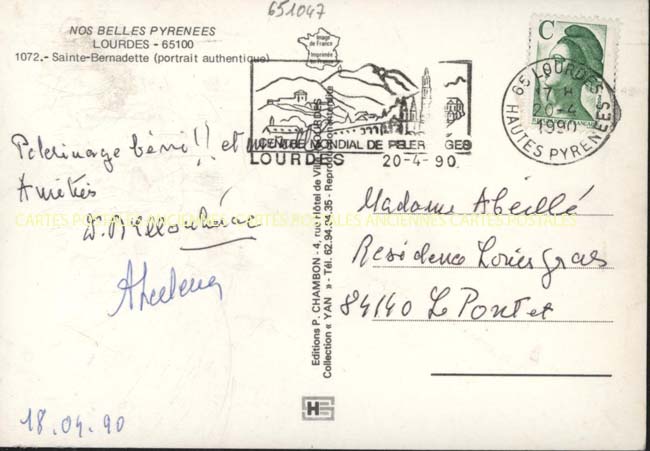 651047
NOS BELLES PYRENEES
LOURDES - 65100
1072.- Sainte-Bernadette (portrait authentique)
Image
de France
Imprimée
en France
C
65 LOURDES
17 H
20-4
1990
HAUTES PYRENEES
CENTRE MONDIAL DE PELER GES
LOURDES 20-4-90
Pelerinage béni!! et
Amitiés
18.04.90
Editions P. CHAMBON - 4, rue Hôtel de Ville LOURDES
Collection « YAN » - Tél. 62.94.34.35 - Reproduction interdite
Madame Abeillé
Résidence
84140 Le Pontet
CARTES POSTALES ANCIENNES CARTES POSTALES ANCIENNES CARTES POSTALES AN